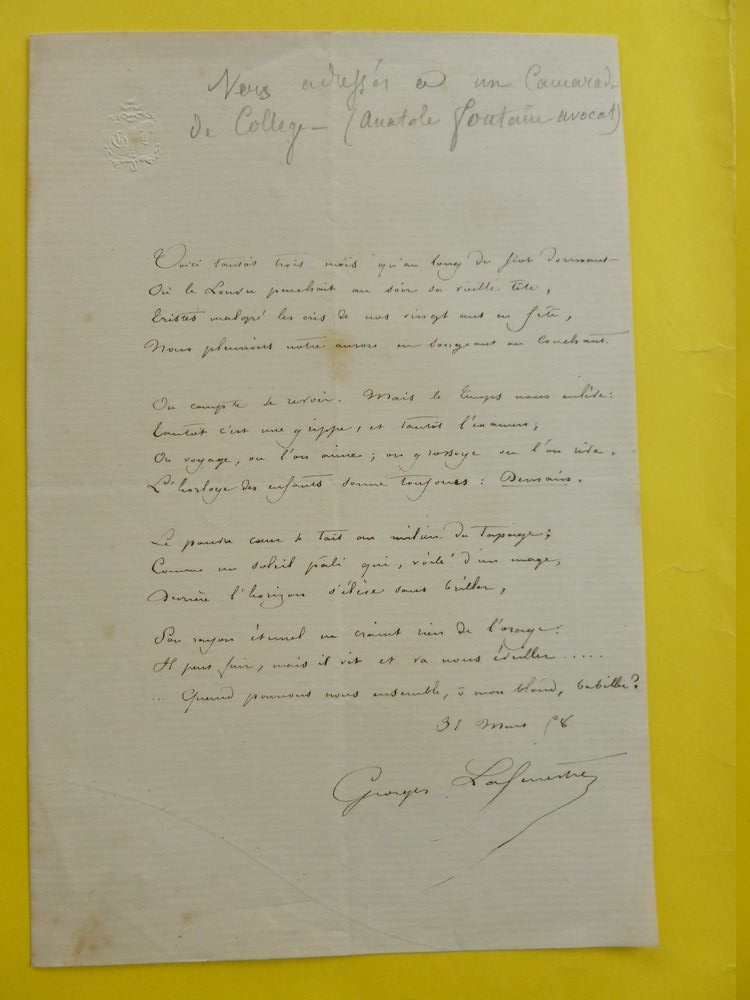 Vers adressés à un Camarade
de Collège — (Anatole Fontaine avocat)
G L
Voici tantôt trois mois qu'au long du flot dormant
Où le Louvre penchait au soir sa vieille tête,
Tristes malgré les cris de nos vingt ans en fête,
Nous pleurions notre aurore en songeant au Couchant.
On compte se revoir. Mais le Temps nous enlève :
Tantôt c'est une grippe, et tantôt l'examen ;
On voyage, ou l'on aime ; on grossoye ou l'on rêve.
L'horloge des enfants sonne toujours : Demain.
Le pauvre cœur se tait au milieu du tapage ;
Comme un soleil pâli qui, voilé d'un nuage,
Derrière l'horizon s'élève sans briller,
Son rayon éternel ne craint rien de l'orage.
Il peut fuir, mais il vit et va nous éveiller .....
... Quand pourrons nous ensemble, ô mon blond, babiller ?
31 Mars 58
Georges Lafenestre